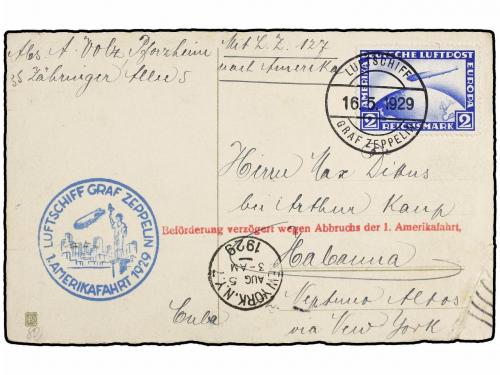 Abs A. Volz Pforzheim
Zähringer Allee 5
Mit L. Z. 127
nach Amerika
DEUTSCHE LUFTPOST
EUROPA
AMERIKA
2 REICHSMARK 2
LUFTSCHIFF
16.5.1929
GRAF ZEPPELIN
Herrn Max Dikus
bei Arthur Kaup
Beförderung verzögert wegen Abbruchs der 1. Amerikafahrt,
Habanna
Neptuno Altos
Cuba
via New York
LUFTSCHIFF GRAF ZEPPELIN
1. AMERIKAFAHRT 1929
NEW YORK, N.Y.
AUG 5
3-AM
1929